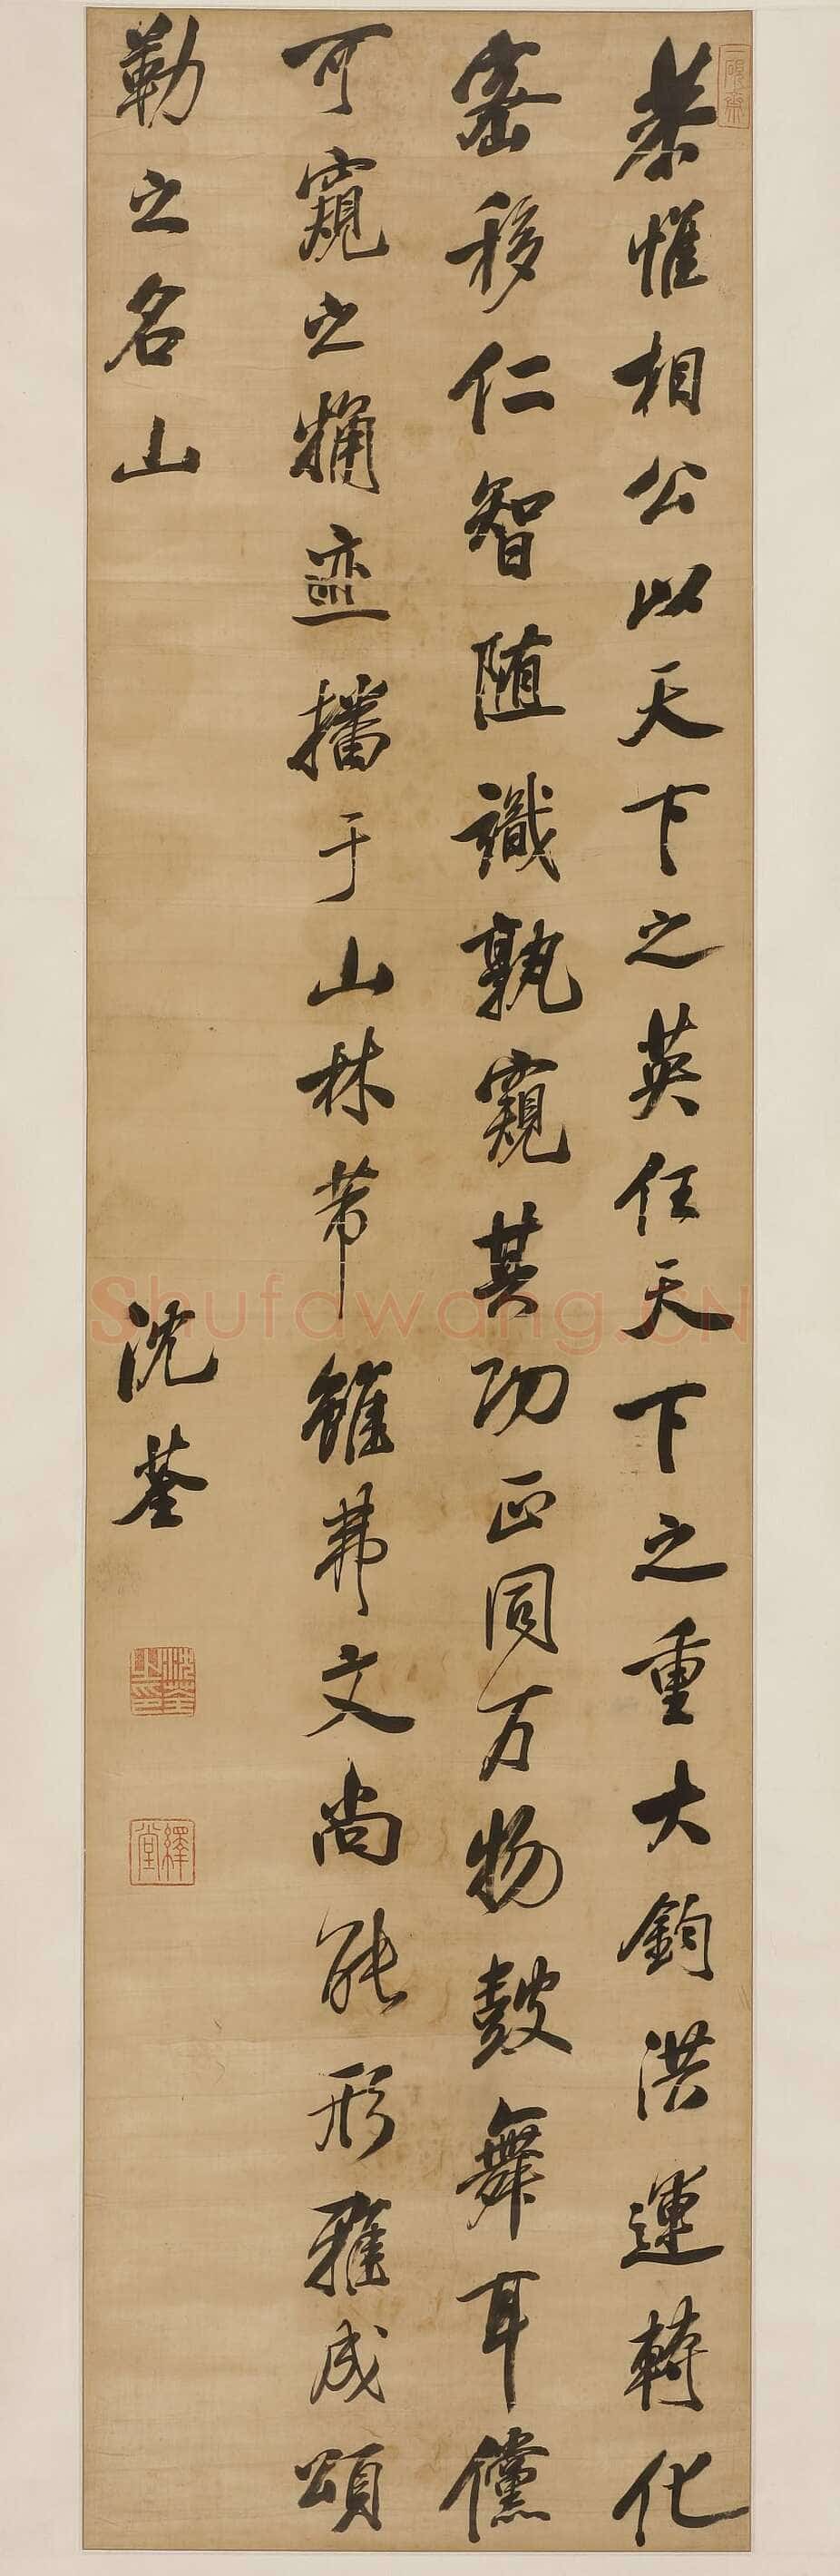 恭惟相公以天下之英任天下之重大鈞洪運轉化
密移仁智随識孰窺其功正同万物鼓舞耳儻
可窺之粗迹播于山林芾雖弗文尚能形雅成頌
勒之名山
沈荃
沈荃之印
繹堂
一硯齋
Shufawang.CN